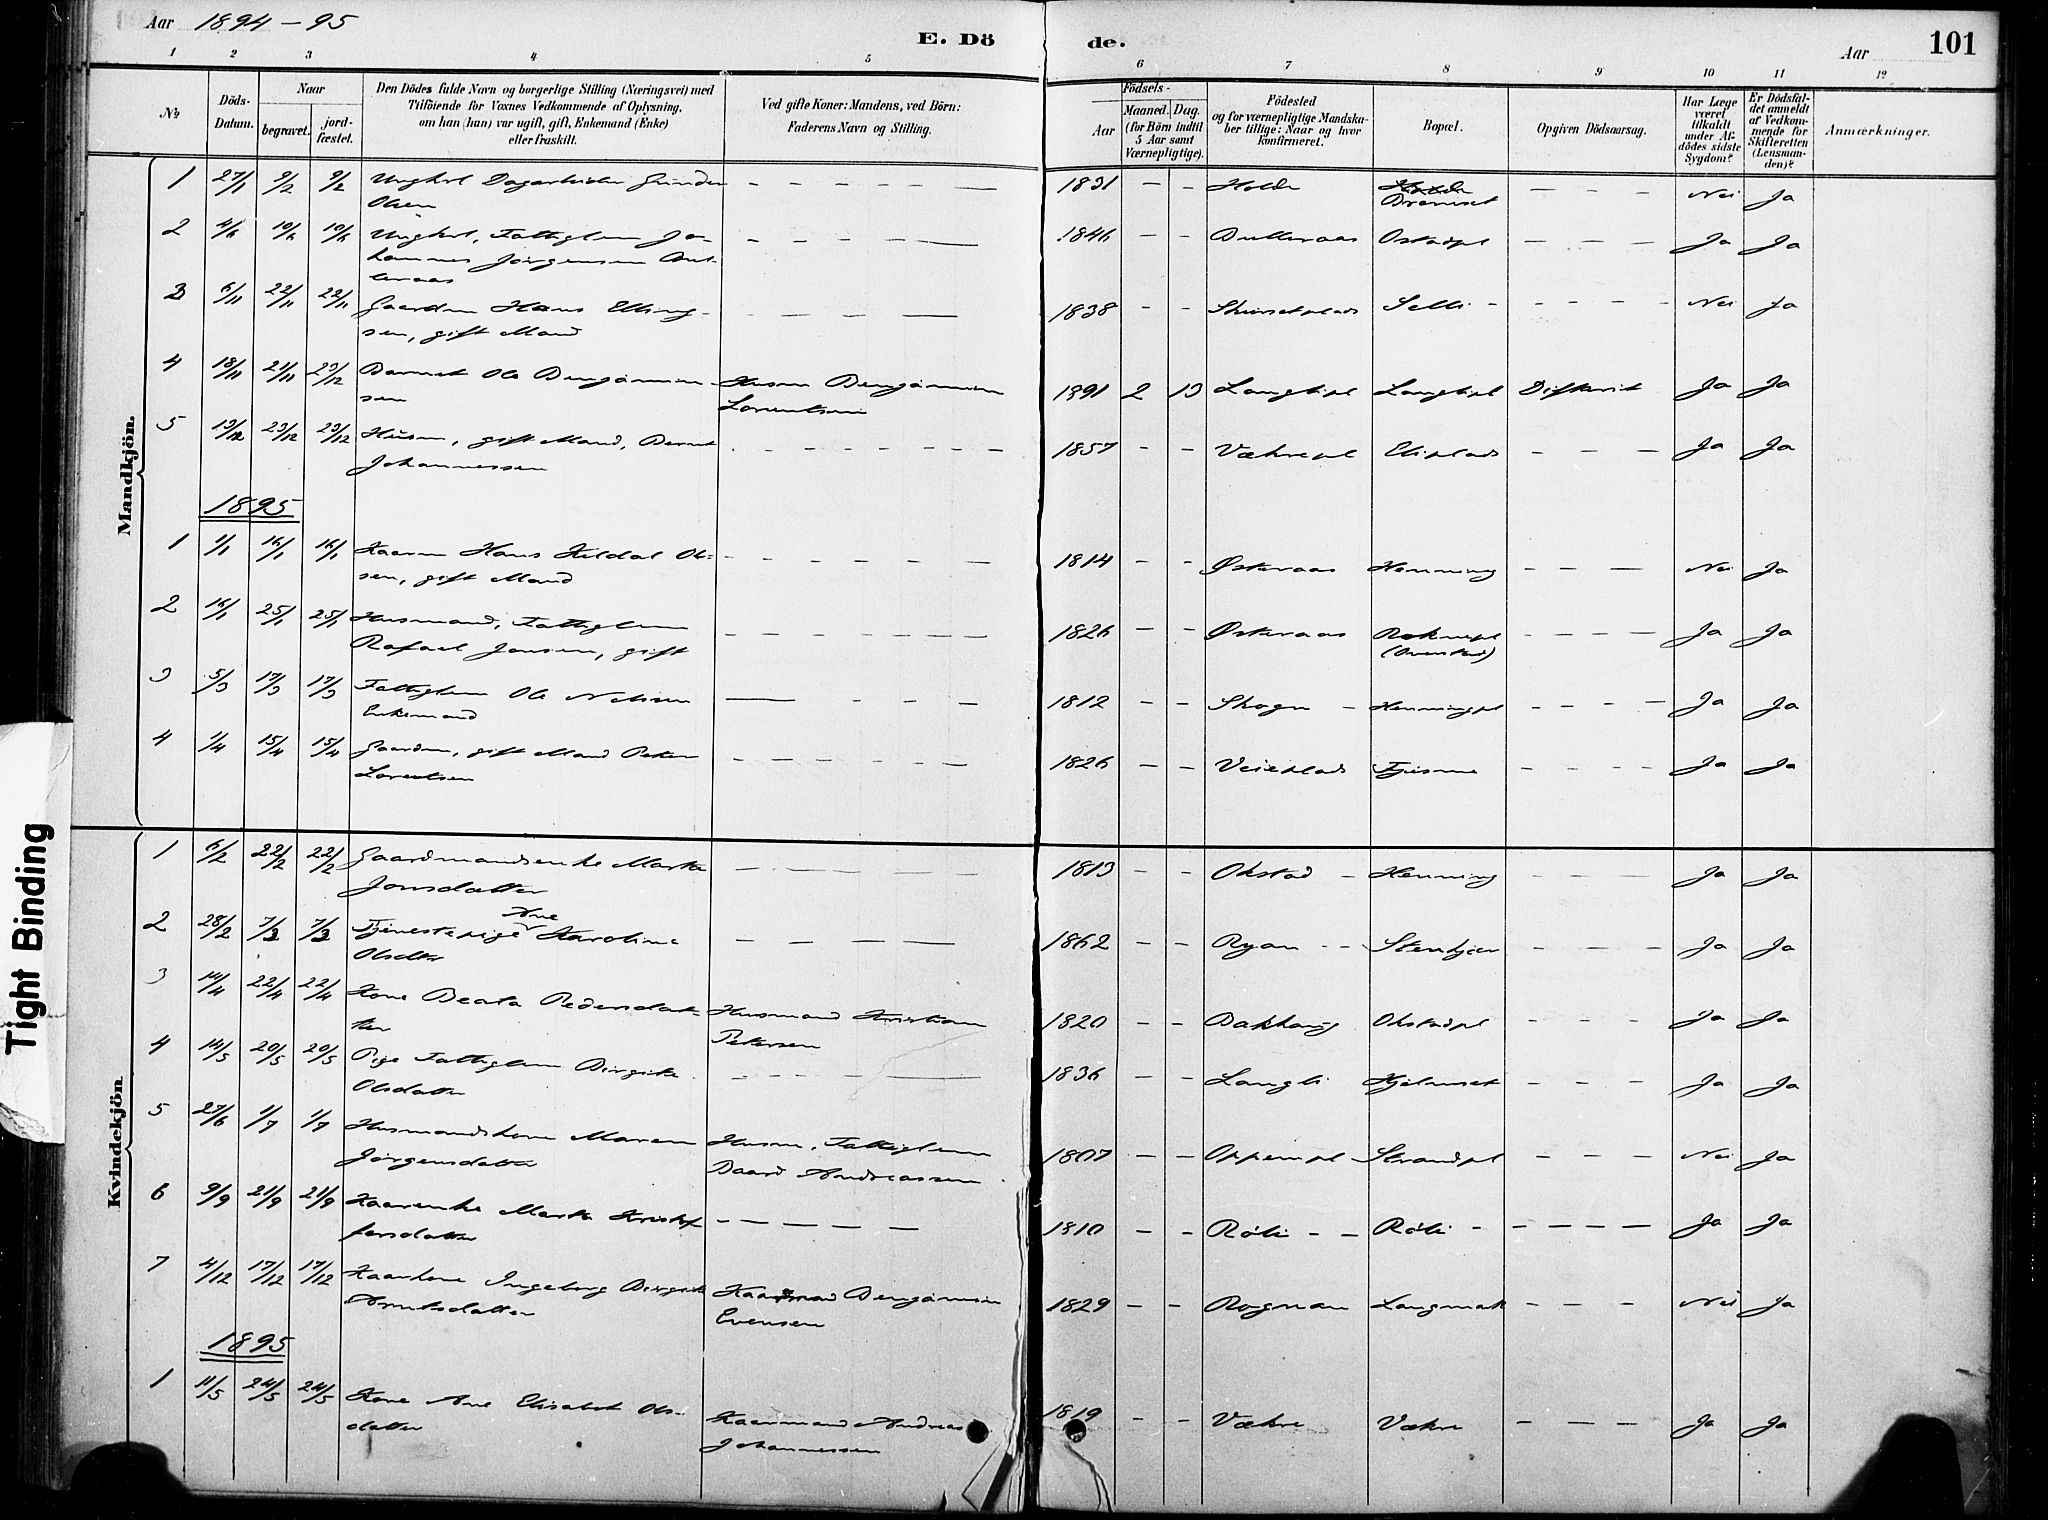 Aar 1894-95
E. Döde.
Aar
101
1 2 3 4 5 6 7 8 9 10 11 12
No
Döds-Datum.
Naar
begravet.
jord-fæstet.
Den Dödes fulde Navn og borgerlige Stilling (Næringsvei) med
Tilföiende for Voxnes Vedkommende af Oplysning,
om han (hun) var ugift, gift, Enkemand (Enke)
eller fraskilt.
Ved gifte Koner: Mandens, ved Börn:
Faderens Navn og Stilling.
Födsels-
Aar
Maaned. Dag.
(for Börn indtil
5 Aar samt
Værnepligtige).
Födested
og for værnepligtige Mandska-
ber tillige: Naar og hvor
konfirmeret.
Bopæl.
Opgiven Dödsaarsag.
Har Læge
været
tilkaldt
under Af-
dödes sidste
Sygdom?
Er Dödsfal-
det anmeldt
af Vedkom-
mende for
Skifteretten
(Lensman-
den)?
Anmærkninger.
Mandkjön.
1 27/1 9/2 9/2 Ungkrl Dagarbeider
Olsen
1831 - - Nei Ja
2 4/6 10/6 10/6 Ungkrl, Fattiglem Jo-
hannes Jörgensen
1846 - - Ja Ja
3 6/11 22/11 22/11 Gaardm Hans Elling-
sen, gift Mand
1838 - - Selli - Nei Ja
4 18/11 21/11 23/12 Barnet Ole Benjamin-
sen
Husm Benjamin
Lorentsen
1891 2 13 Langlipl Langlipl Difterit Ja Ja
5 13/12 23/12 23/12 Husm, gift Mand, Bernt
Johannessen
1857 - - Vækrepl Eliplads Ja Ja
1895
1 1/1 16/1 16/1 Kaarm Hans Kildal Ol-
sen, gift Mand
1814 - - Østeraas Henning Nei Ja
2 16/1 25/1 25/1 Husmand, Fattiglem
Rafael Jonsen, gift
1826 - - Østeraas Ja Ja
3 5/3 17/3 17/3 Fattiglem Ole Nilssen
Enkemand
1812 - - Skogn - Henningpl Ja Ja
4 1/4 15/4 15/4 Gaardm, gift Mand Peter
Lorentsen
1826 - - Veieplads Ja Ja
Kvindekjön.
1 6/2 22/2 22/2 Gaardmandsenke Marta
Jonsdatter
1813 - - Okstad - Henning Ja Ja
2 28/2 7/3 7/3 Tjenestepige Ane Karoline
Olsdtr
1862 - - Ryan - - Stenkjer Ja Ja
3 14/4 22/4 22/4 Kone Beata Pedersdat-
ter
Husmand Kristian
Petersen
1820 - - Bakhaug Okstadpl Ja Ja
4 14/5 20/5 20/5 Pige Fattiglem Birgite
Olsdatter
1836 - - Langli Hjelmset Ja Ja
5 27/6 1/7 1/7 Husmandskone Maren
Jörgensdatter
Husm, Fattiglem
Baard Andreassen
1807 - - Oppempl Strandpl Nei Ja
6 9/9 21/9 21/9 Kaarenke Marta Kristof-
fersdatter
1810 - - Röli - - Röli - Ja Ja
7 4/12 17/12 17/12 Kaarkone Ingeborg Birgite
Arntsdatter
Kaarmand Benjamin
Evensen
1829 - - Rognan Langmak Nei Ja
1895
1 11/5 24/5 24/5 Kone Ane Elisabet Ols-
datter
Kaarmand Andreas
Johannessen
1819 - - Vækre Vækre Ja Ja
Tight Binding